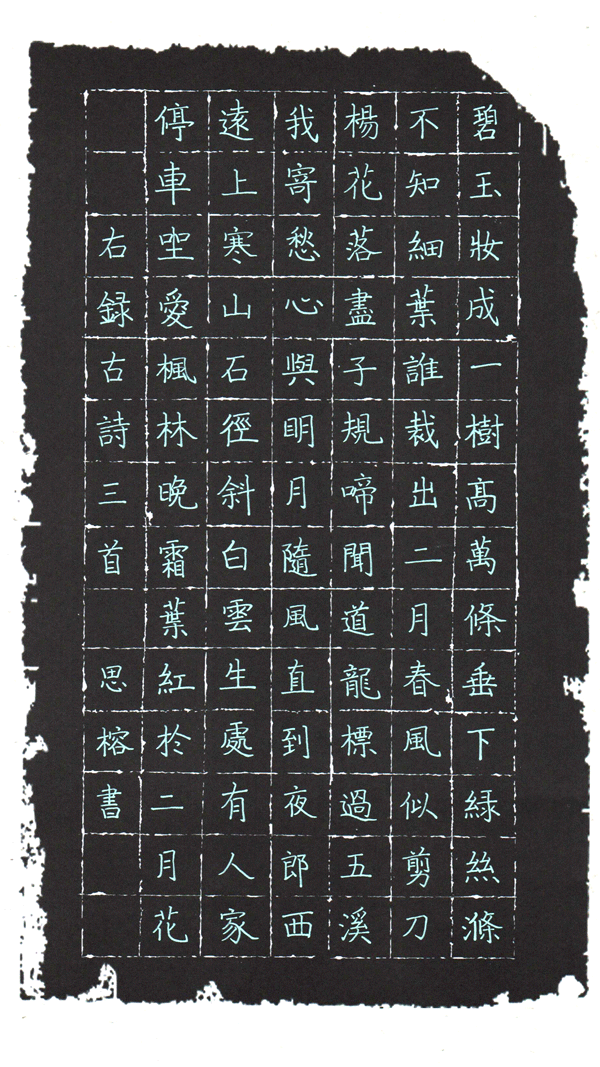 碧玉妝成一樹髙萬條垂下緑絲滌
不知細葉誰裁出二月春風似剪刀
楊花落盡子規啼聞道龍標過五溪
我寄愁心與明月隨風直到夜郎西
遠上寒山石徑斜白雲生處有人家
停車坐愛楓林晚霜葉紅於二月花
右録古詩三首 思榕書